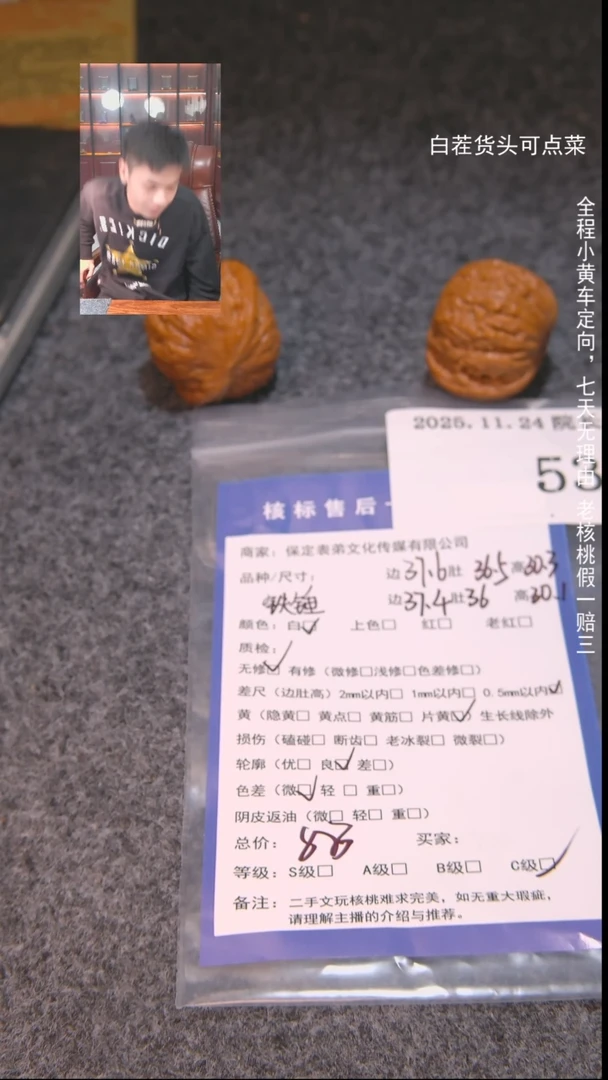 白茬货头可点菜
全程小黄车定向，七天无理由 老核桃假一赔三
DICKIES
2025.11.24 院
53
核标售后
商家：保定表弟文化传媒有限公司
品种/尺寸：
边37.6肚36.5高30.3
铁锤
边37.4肚36 高30.1
颜色：白☑ 上色□ 红□ 老红□
质检：
无修☑ 有修（微修□浅修□色差修□）
差尺（边肚高）2mm以内□ 1mm以内□ 0.5mm以内☑
黄（隐黄□ 黄点□ 黄筋□ 片黄☑）生长线除外
损伤（磕碰□ 断齿□ 老冰裂□ 微裂□）
轮廓（优□ 良☑ 差□）
色差（微☑ 轻□ 重□）
阴皮返油（微□ 轻□ 重□）
总价：88 买家：
等级：S级□ A级□ B级□ C级☑
备注：二手文玩核桃难求完美，如无重大瑕疵，
请理解主播的介绍与推荐。